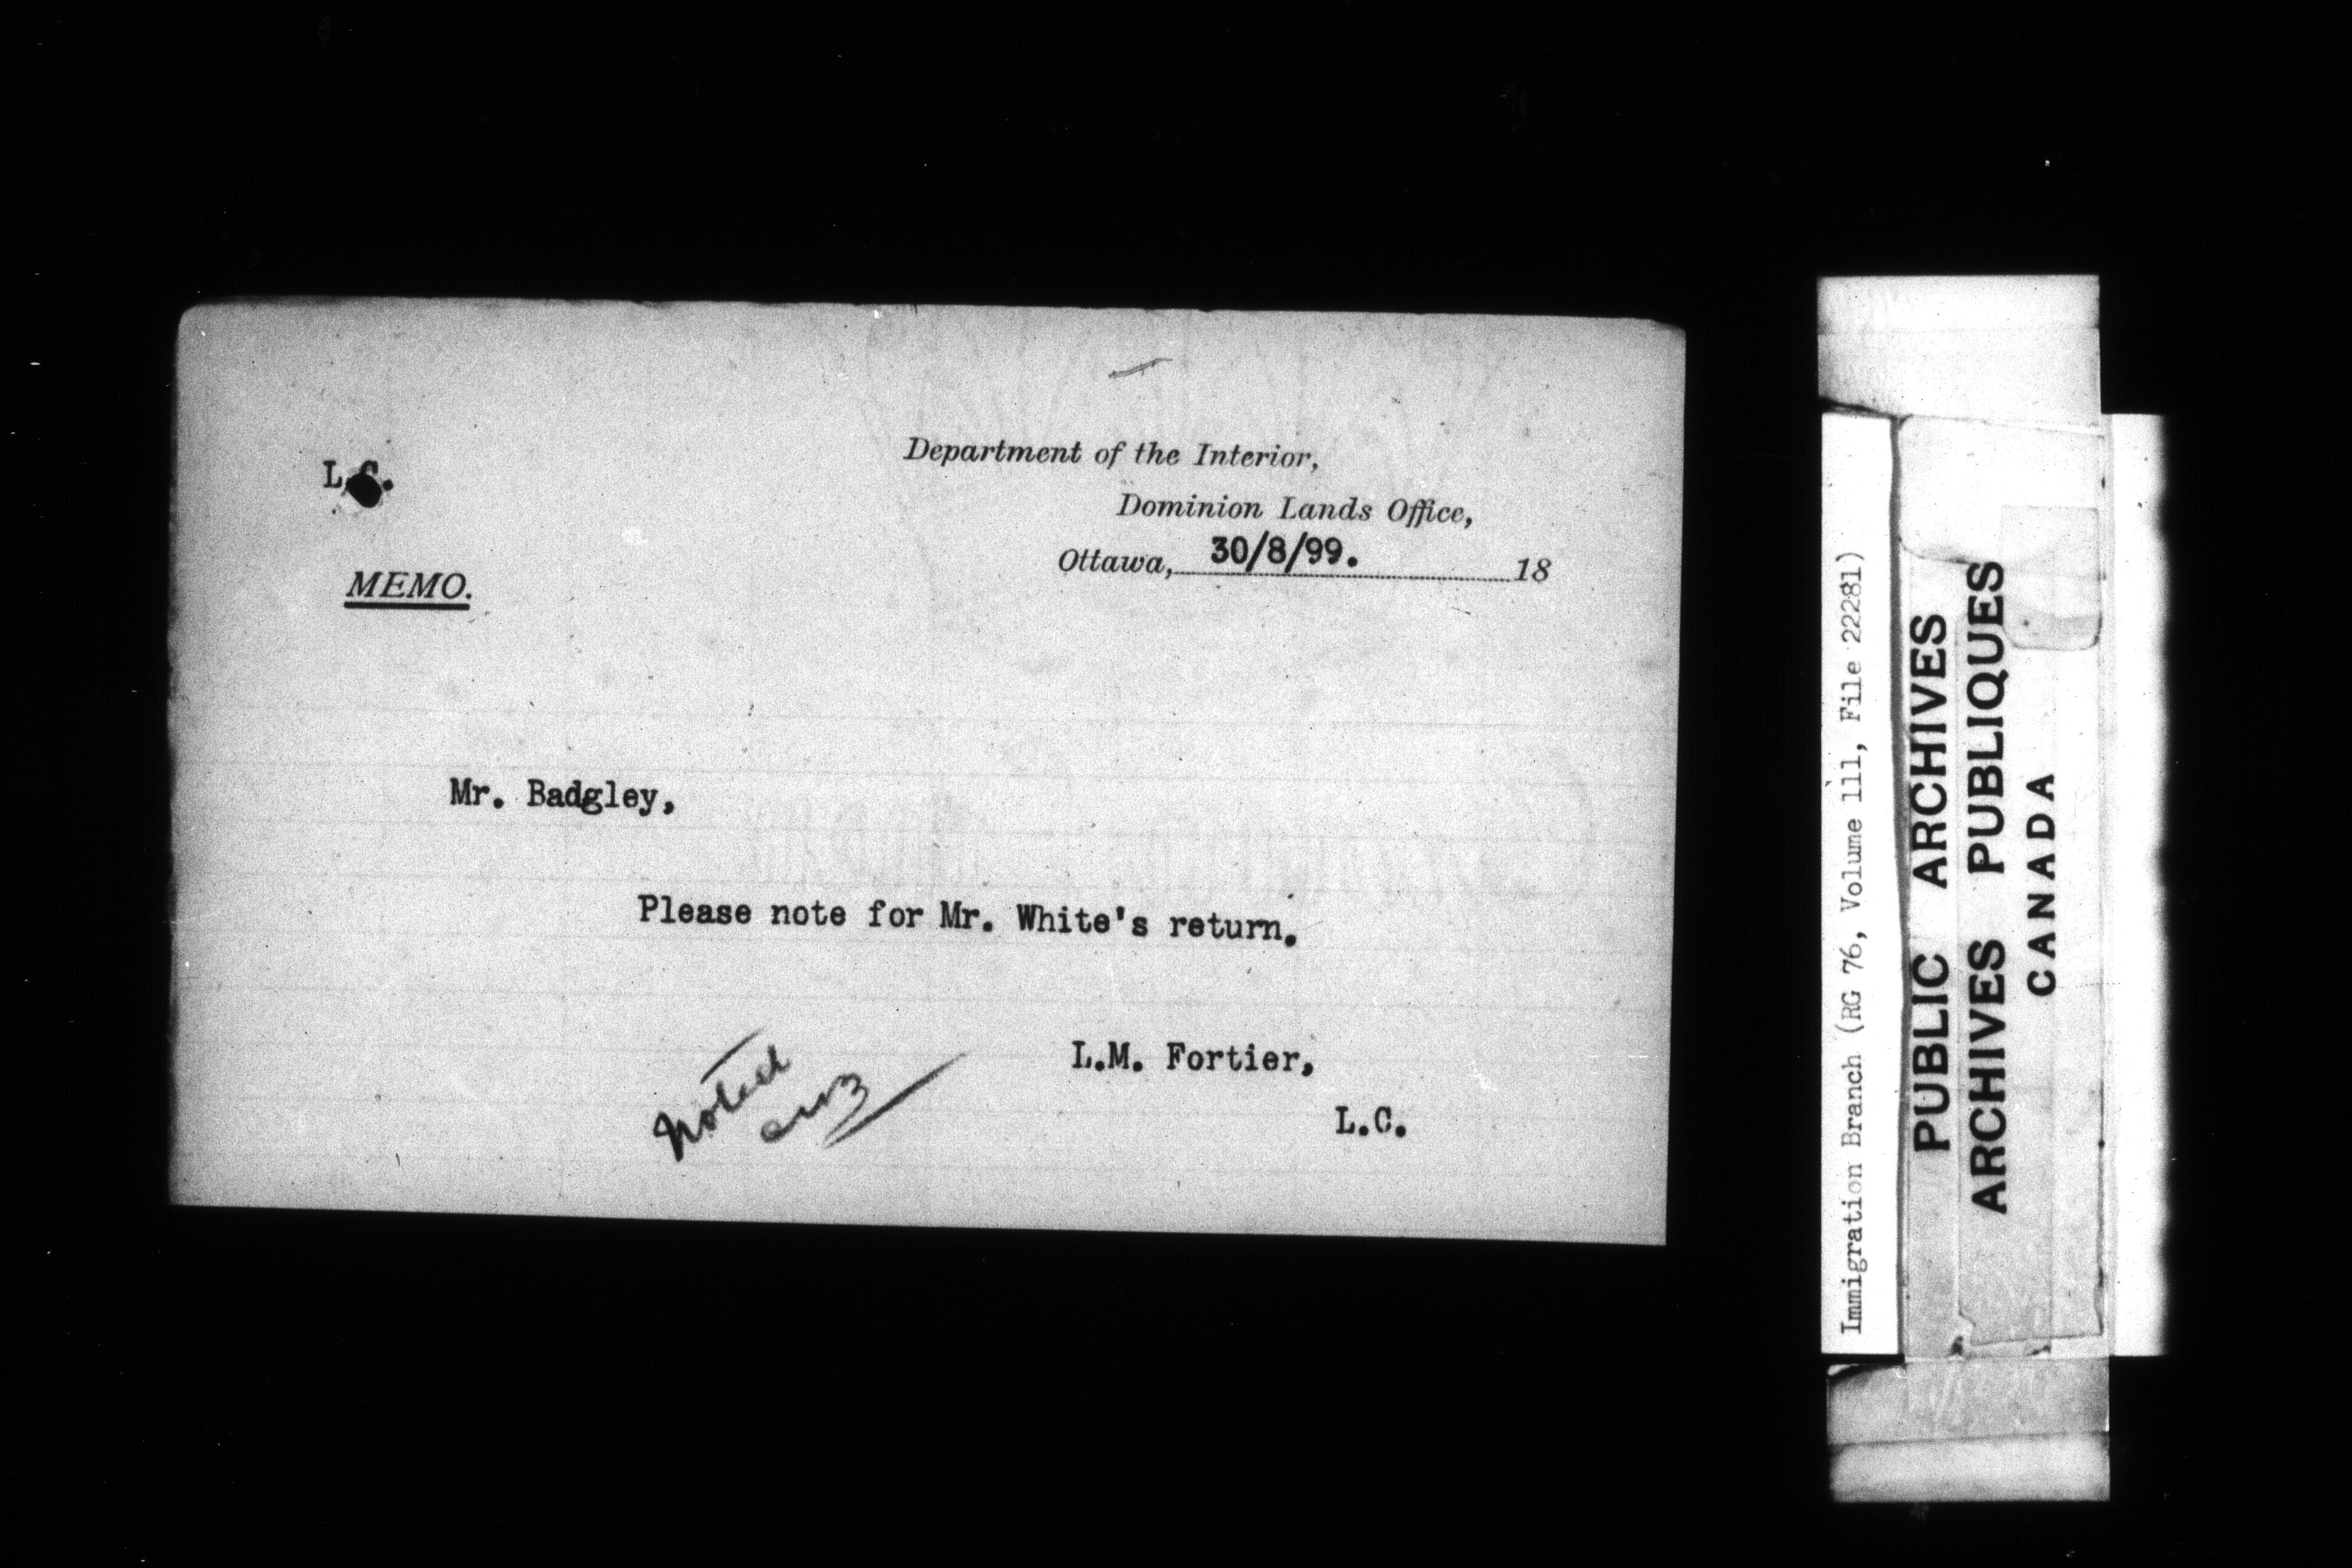 L.C.
Department of the Interior,
Dominion Lands Office,
Ottawa, 30/8/99. 18
MEMO.
Mr. Badgley,
Please note for Mr. White's return.
L.M. Fortier,
L.C.
Noted
Immigration Branch (RG 76, Volume 111, File 22281)
PUBLIC ARCHIVES
ARCHIVES PUBLIQUES
CANADA